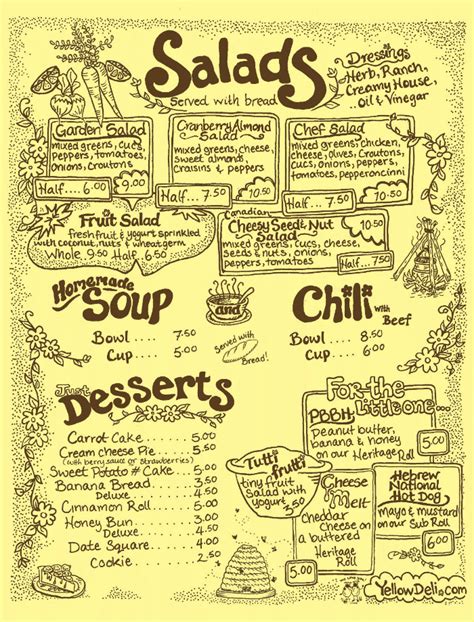 Salads
Served with bread
Dressings
Herb, Ranch,
Creamy House,
Oil & Vinegar
Garden Salad
mixed greens, cucs,
peppers, tomatoes,
onions, Croutons
Half... 6.00
9.00
Cranberry Almond
Salad
mixed greens, cheese,
sweet almonds,
craisins & peppers
Half... 7.50
10.50
Chef Salad
mixed greens, chicken,
cheese, olives, Croutons,
Cucs, onions, peppers,
tomatoes, pepperoncinni
Half... 7.50
10.50
Fruit Salad
fresh fruit & yogurt sprinkled
with coconut, nuts & wheat germ
Whole. 9.50 Half. 6.50
Canadian
Cheesy Seed & Nut
Salad
mixed greens, cucs, cheese,
seeds & nuts, onions,
peppers, tomatoes
10.50
Half... 7.50
Homemade
Soup
Bowl .... 7.50
Cup ..... 5.00
and
Served with
Bread!
Chili with
Beef
Bowl ..... 8.50
Cup ...... 6.50
Just
Desserts
Carrot Cake .... 5.00
Cream Cheese Pie.. 5.00
(with berry sauce or strawberries)
Sweet Potato # Cake . 5.00
Banana Bread ... 3.50
Deluxe ..... 4.50
Cinnamon Roll .... 5.00
Honey Bun .... 3.00
Deluxe ..... 4.50
Date Square .... 4.00
Cookie ..... 2.50
Tutti
frutti
tiny fruit
Salad with
yogurt 3.50
For the
Little one...
PBBH
Peanut butter,
banana & honey
on our Heritage Roll
5.00
Cheese
Melt
Cheddar
Cheese on
a buttered
Heritage
Roll
5.00
Hebrew
National
Hot Dog
Mayo & mustard
on our Sub Roll
6.00
YellowDeli.com